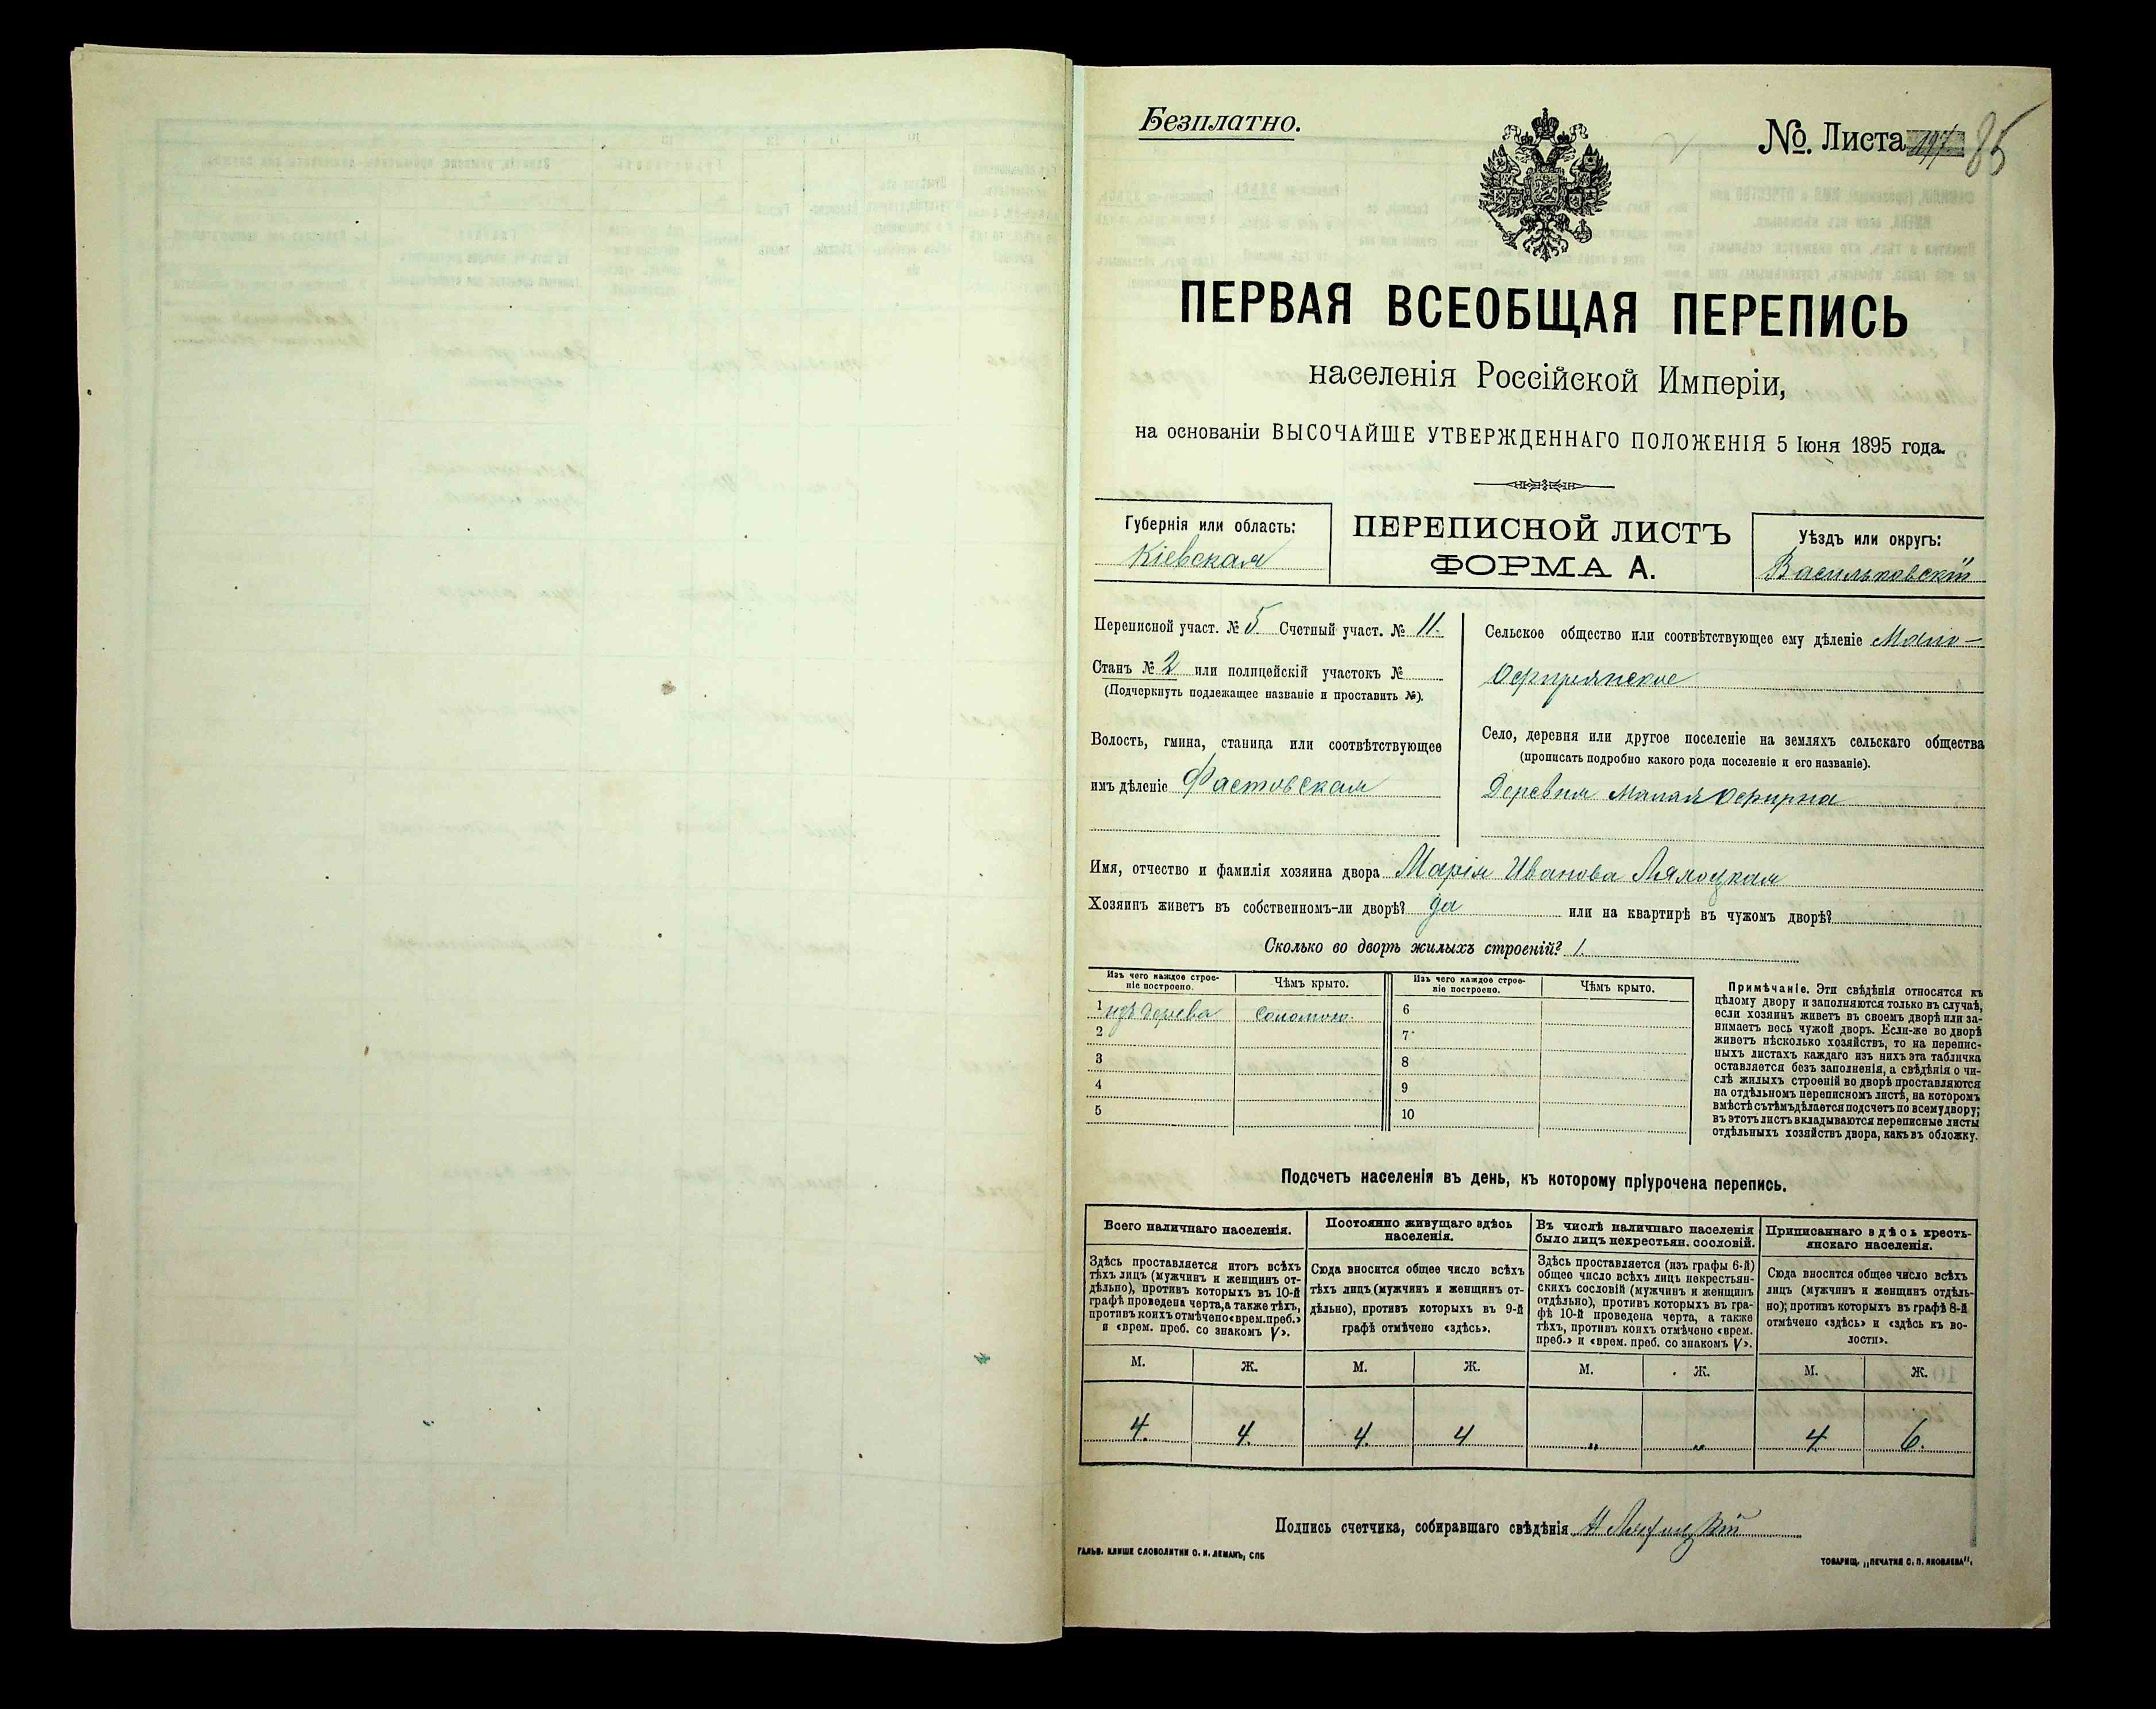 Безплатно.
№. Листа 85
ПЕРВАЯ ВСЕОБЩАЯ ПЕРЕПИСЬ
населенія Россійской Имперіи,
на основаніи ВЫСОЧАЙШЕ УТВЕРЖДЕННАГО ПОЛОЖЕНІЯ 5 Іюня 1895 года.
Губернія или область:
Кіевская
ПЕРЕПИСНОЙ ЛИСТЪ
ФОРМА А.
Уѣздъ или округъ:
Васильковскій
Переписной участ. № 5 Счетный участ. № 11.
Станъ № 2 или полицейскій участокъ №
(Подчеркнуть подлежащее названіе и проставить №).
Волость, гмина, станица или соотвѣтствующее
имъ дѣленіе Фастовская
Сельское общество или соотвѣтствующее ему дѣленіе Мало-
Офирнянское
Село, деревня или другое поселеніе на земляхъ сельскаго общества
(прописать подробно какого рода поселеніе и его названіе).
Деревня Малая Офирна
Имя, отчество и фамилія хозяина двора Марія Иванова
Хозяинъ живетъ въ собственномъ-ли дворѣ? да или на квартирѣ въ чужомъ дворѣ?
Сколько во дворѣ жилыхъ строеній? 1.
Изъ чего каждое строе-
ніе построено.
Чѣмъ крыто.
Изъ чего каждое строе-
ніе построено.
Чѣмъ крыто.
1 изъ дерева соломою. 6
2 7
3 8
4 9
5 10
Примѣчаніе. Эти свѣдѣнія относятся къ
цѣлому двору и заполняются только въ случаѣ,
если хозяинъ живетъ въ своемъ дворѣ или за-
нимаетъ весь чужой дворъ. Если-же во дворѣ
живетъ нѣсколько хозяйствъ, то на перепис-
ныхъ листахъ каждаго изъ нихъ эта табличка
оставляется безъ заполненія, а свѣдѣнія о чи-
слѣ жилыхъ строеній во дворѣ проставляются
на отдѣльномъ переписномъ листѣ, на которомъ
вмѣстѣ съ тѣмъ дѣлается подсчетъ по всему двору;
въ этотъ листъ вкладываются переписные листы
отдѣльныхъ хозяйствъ двора, какъ въ обложку.
Подсчетъ населенія въ день, къ которому пріурочена перепись.
Всего наличнаго населенія.
Здѣсь проставляется итогъ всѣхъ
тѣхъ лицъ (мужчинъ и женщинъ от-
дѣльно), противъ которыхъ въ 10-й
графѣ проведена черта, а также тѣхъ,
противъ коихъ отмѣчено «врем. преб.»
и «врем. преб. со знакомъ V».
Постоянно живущаго здѣсь
населенія.
Сюда вносится общее число всѣхъ
тѣхъ лицъ (мужчинъ и женщинъ от-
дѣльно), противъ которыхъ въ 9-й
графѣ отмѣчено «здѣсь».
Въ числѣ наличнаго населенія
было лицъ некрестьян. сословій.
Здѣсь проставляется (изъ графы 6-й)
общее число всѣхъ лицъ некрестьян-
скихъ сословій (мужчинъ и женщинъ
отдѣльно), противъ которыхъ въ гра-
фѣ 10-й проведена черта, а также
тѣхъ, противъ коихъ отмѣчено «врем.
преб.» и «врем. преб. со знакомъ V».
Приписаннаго здѣсь кресть-
янскаго населенія.
Сюда вносится общее число всѣхъ
лицъ (мужчинъ и женщинъ отдѣль-
но); противъ которыхъ въ графѣ 8-й
отмѣчено «здѣсь» и «здѣсь къ во-
лости».
М. Ж. М. Ж. М. Ж. М. Ж.
4. 4. 4. 4 „ „ 4 6.
Подпись счетчика, собиравшаго свѣдѣнія
ГАЛЬВ. КЛИШЕ СЛОВОЛИТНИ О. И. ЛЕМАНЪ, СПБ
ТОВАРИЩ. „ПЕЧАТНЯ С. П. ЯКОВЛЕВА".